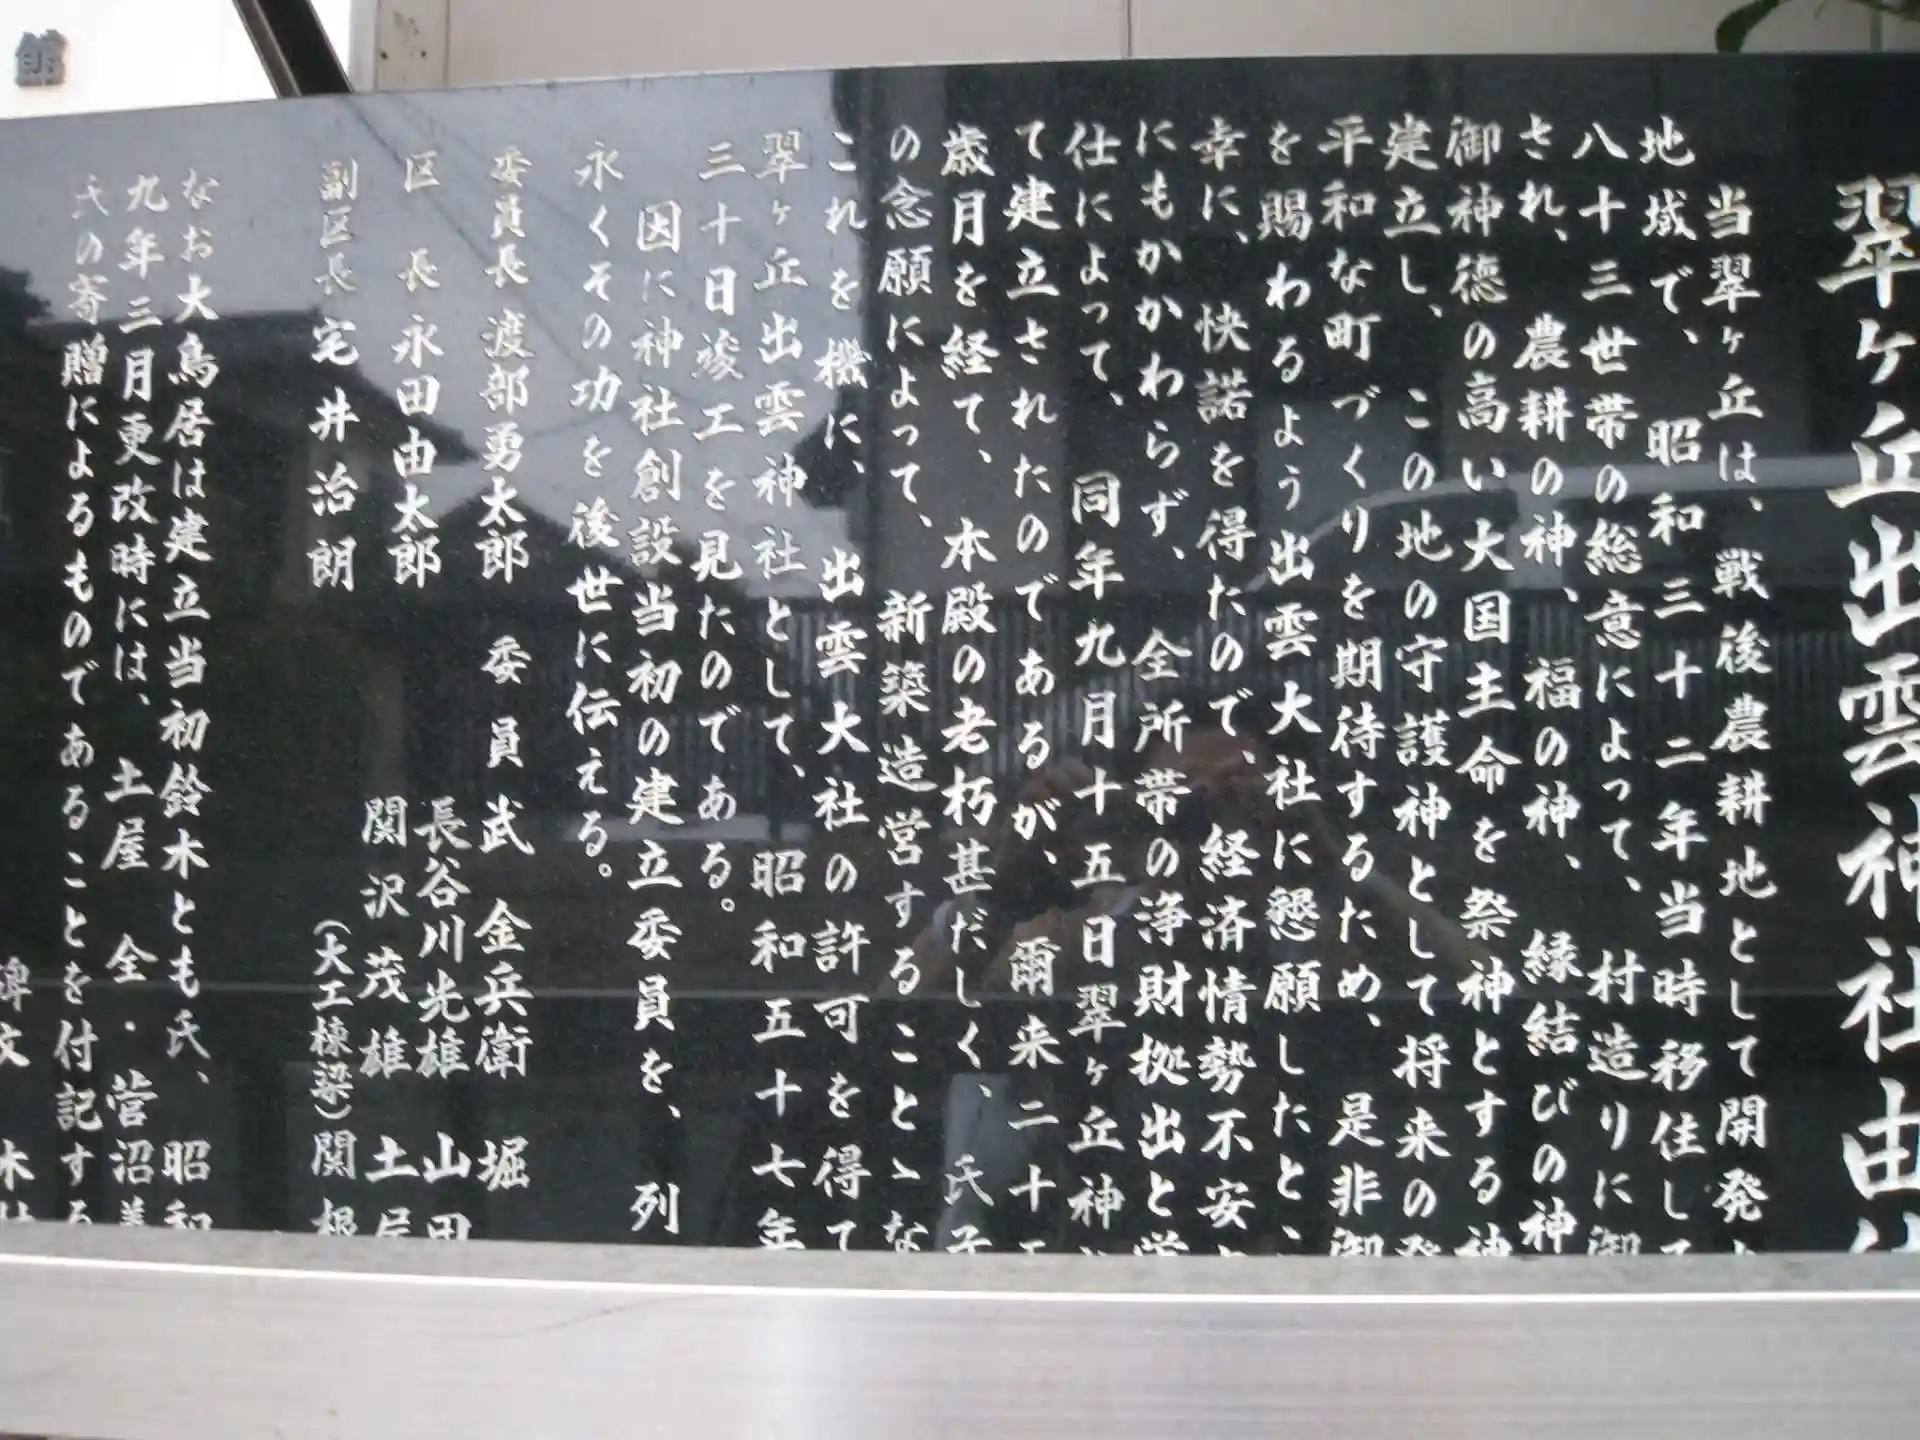 館
翠ヶ丘出雲神社由
当翠ヶ丘は、戦後農耕地として開発
地域で、昭和三十二年当時移住し
八十三世帯の総意によって、村造りに御
され、農耕の神、福の神、縁結びの神
御神徳の高い大国主命を祭神とする神
建立し、この地の守護神として将来の発
平和な町づくりを期待するため、是非御
を賜わるよう出雲大社に懇願したと、
幸に、快諾を得たので、経済情勢不安
にもかかわらず、全所帯の浄財拠出と労
仕によって、同年九月十五日翠ヶ丘神
て建立されたのであるが、爾来二十
歳月を経て、本殿の老朽甚だしく、氏子
の念願によって、新築造営することゝな
これを機に、出雲大社の許可を得て
翠ヶ丘出雲神社として、昭和五十七年
三十日竣工を見たのである。
因に神社創設当初の建立委員を、列
永くその功を後世に伝える。
委員長 渡部勇太郎 委員 武金兵衛 堀
長谷川光雄 山田
区長 永田由太郎
関沢茂雄 土屋
副区長 宅井治朗
(大工棟梁)関根
なお大鳥居は建立当初鈴木とも氏、昭和
九年三月更改時には、土屋全・菅沼
氏の寄贈によるものであることを付記する
碑文